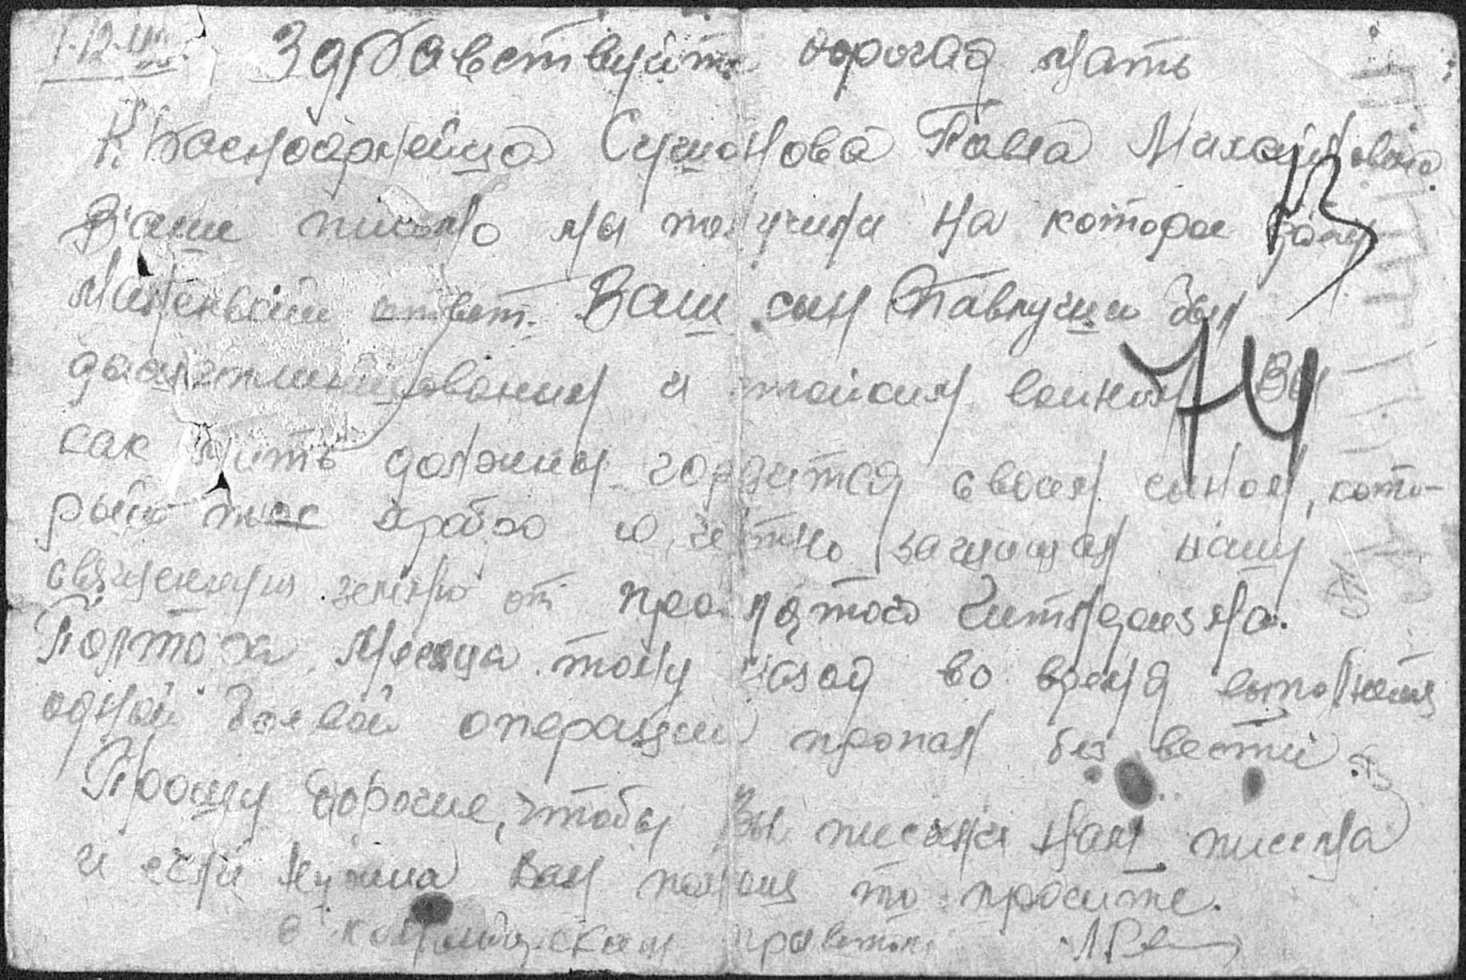 Здравствуйте дорогая мать
Красноармейца Сушонова Павла Михайловича
Ваше письмо мы получили на которое даём
ответ. Ваш сын Павлуша был
и стойким воином Вы
как мать должны гордится своим сыном, кото-
рый так храбро и честно защищал нашу
священную землю от проклятого Гитлеризма.
Полтора месяца тому назад во время выполнения
одной боевой операции пропал без вести
Прошу дорогие, чтобы Вы писали нам письма
и если нужна вам помощ то просите.
с командирским приветом